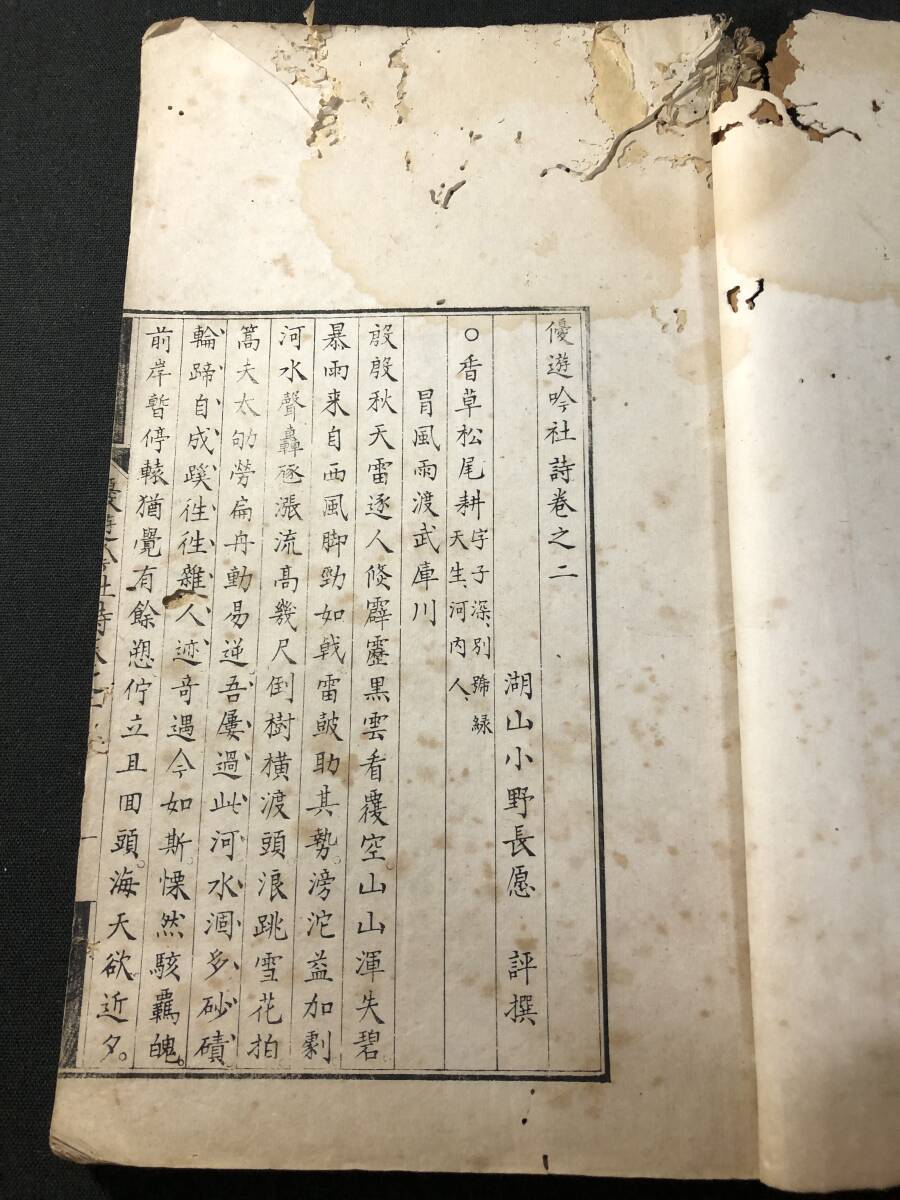 優遊吟社詩卷之二
湖山小野長愿 評撰
○香草松尾耕 字子深、別號綠天生河内人、
冒風雨渡武庫川
殷殷秋天雷逐人倐霹靂黑雲看覆空山山渾失碧
暴雨来自西風脚勁如戟雷皷助其勢滂沱益加劇
河水聲轟豗漲流高幾尺倒樹横渡頭浪跳雪花拍
篙夫太劬勞扁舟動易逆吾屢過此河水涸多砂磧
輪蹄自成蹊徃徃雜人迹竒遇今如斯慄然駭羈魄
前岸暫停轅猶覺有餘愬佇立且回頭海天欲近夕